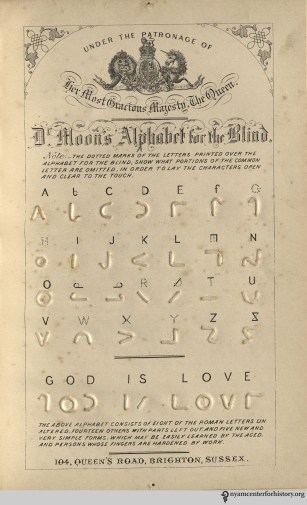 UNDER THE PATRONAGE OF
Her Most Gracious Majesty, The Queen.
Dr. Moon's Alphabet for the Blind.
Note. THE DOTTED MARKS OF THE LETTERS PRINTED OVER THE
ALPHABET FOR THE BLIND, SHOW WHAT PORTIONS OF THE COMMON
LETTER ARE OMITTED, IN ORDER TO LAY THE CHARACTERS OPEN
AND CLEAR TO THE TOUCH.
A b C D E f G
H I J K L m N
O P Q R S T U
V W X Y Z
GOD IS LOVE
THE ABOVE ALPHABET CONSISTS OF EIGHT OF THE ROMAN LETTERS UN
ALTERED, FOURTEEN OTHERS WITH PARTS LEFT OUT, AND FIVE NEW AND
VERY SIMPLE FORMS, WHICH MAY BE EASILY LEARNED BY THE AGED,
AND PERSONS WHOSE FINGERS ARE HARDENED BY WORK.
104, QUEEN'S ROAD, BRIGHTON, SUSSEX.
nyamcenterforhistory.org